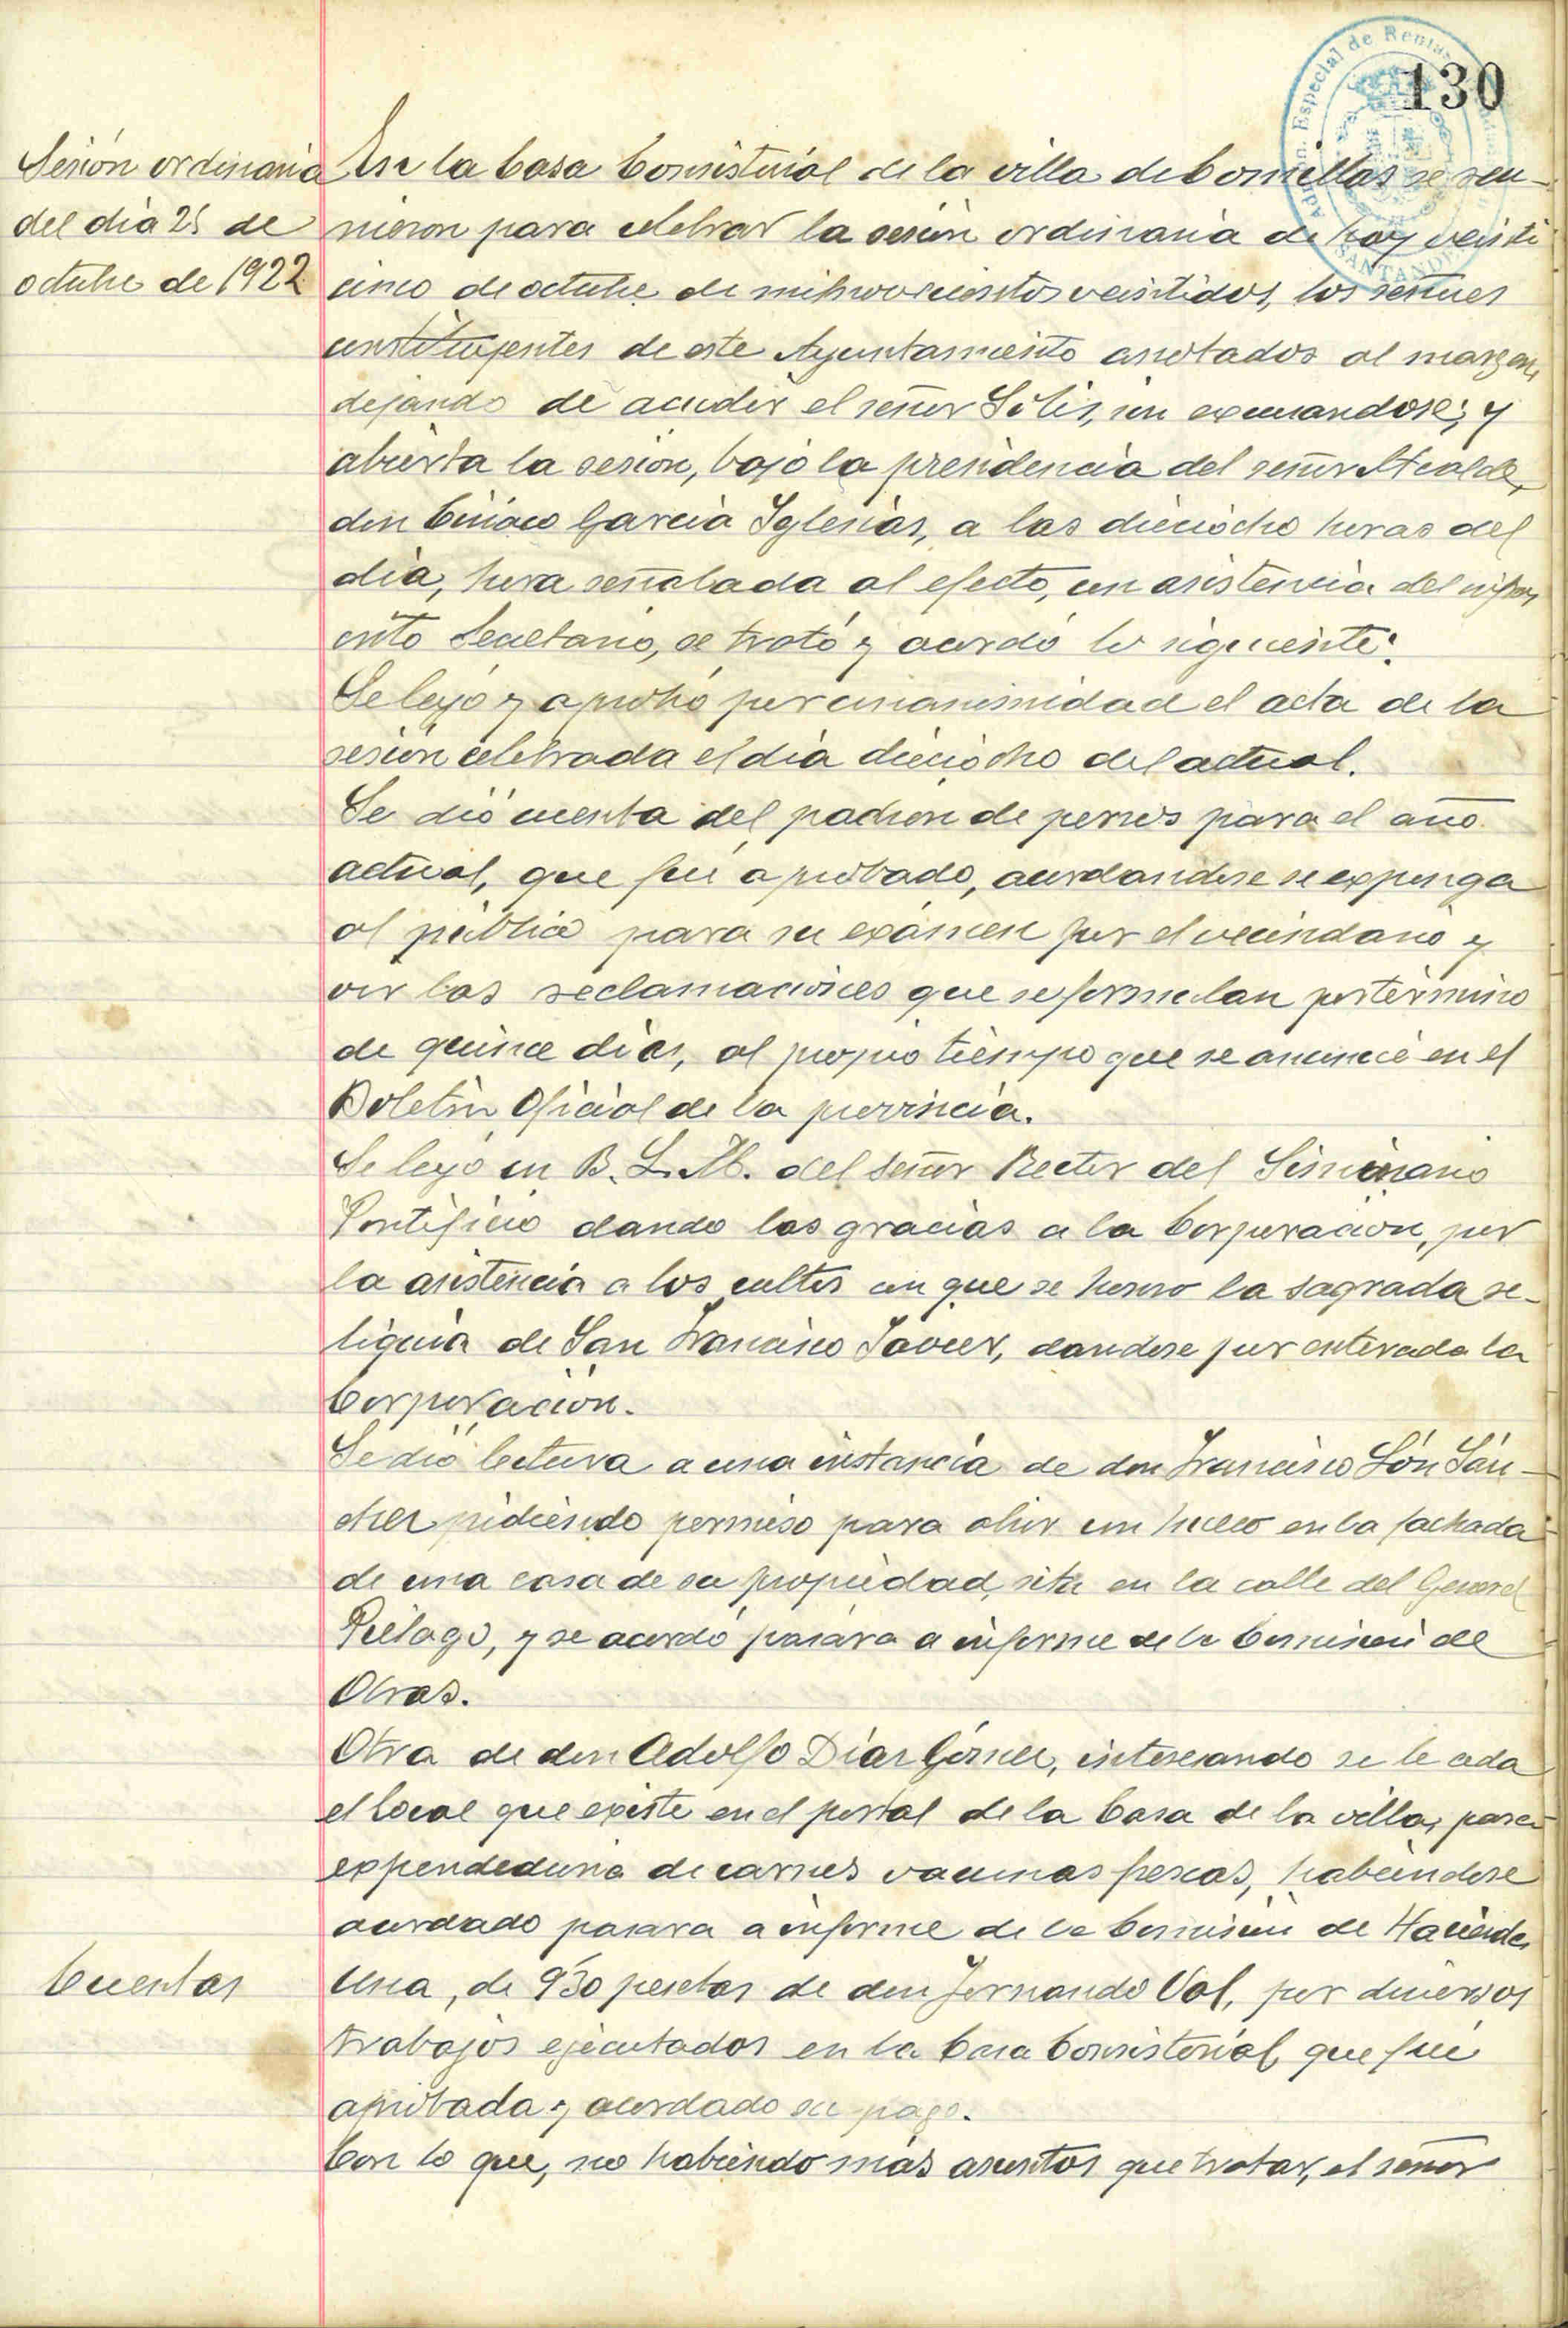 130
Admón. Especial de Rentas
SANTANDER
Sesión ordinaria
del día 25 de
octubre de 1922
En la Casa Consistorial de la villa de Comillas se reu-
nieron para celebrar la sesión ordinaria de hoy veinti
cinco de octubre de mil novecientos veintidos, los señores
constituyentes de este Ayuntamiento anotados al margen,
dejando de acudir el señor Solis, sin excusandose; y
abierta la sesión, bajo la presidencia del señor Alcalde,
don Ciriaco García Iglesias, a las dieciocho horas del
día, hora señalada al efecto, con asistencia del infras
crito Secretario, se trató y acordó lo siguiente:
Se leyó y aprobó por unanimidad el acta de la
sesión celebrada el día dieciocho del actual.
Se dió cuenta del padron de perros para el año
actual, que fué aprobado, acordandose se exponga
al público para su exámen por el vecindario y
oir las reclamaciones que se formulan por término
de quince días, al propio tiempo que se anuncie en el
Boletín Oficial de la provincia.
Se leyó un B. L. M. del señor Rector del Seminario
Pontificio dando las gracias a la Corporación, por
la asistencia a los cultos con que se honró la sagrada re-
liquia de San Francisco Javier, dandose por enterada la
Corporación.
Se dió lectura a una instancia de don Francisco Són Sán-
chez pidiendo permiso para abrir un hueco en la fachada
de una casa de su propiedad, sita en la calle del General
Piélago, y se acordó pasara a informe de la Comisión de
Obras.
Otra de don Adolfo Díaz Gómez, interesando se le ceda
el local que existe en el portal de la Casa de la villa, para
expendeduria de carnes vacunas frescas, habiendose
acordado pasara a informe de la Comisión de Hacienda
Cuentas
Una, de 930 pesetas de don Fernando Val, por diversos
trabajos ejecutados en la Casa Consistorial, que fué
aprobada y acordado su pago.
Con lo que, no habiendo más asuntos que tratar, el señor